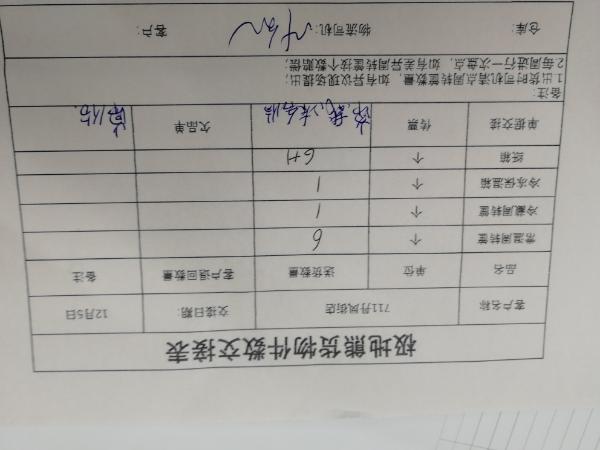 极地熊货物件数交接表
客户名称 711丹凤街店 交接日期: 12月5日
品名 单位 送货数量 客户退回数量 备注
常温周转筐 个 6
冷藏周转筐 个 1
冷冻保温箱 个 1
纸箱 个 6+1
单据交接 传票 欠品单
备注:
1出货时司机清点周转筐数量，如有异议现场提出;
2每周进行一次盘点，如有差异周转筐按个数赔偿
仓库: 物流司机: 客户: